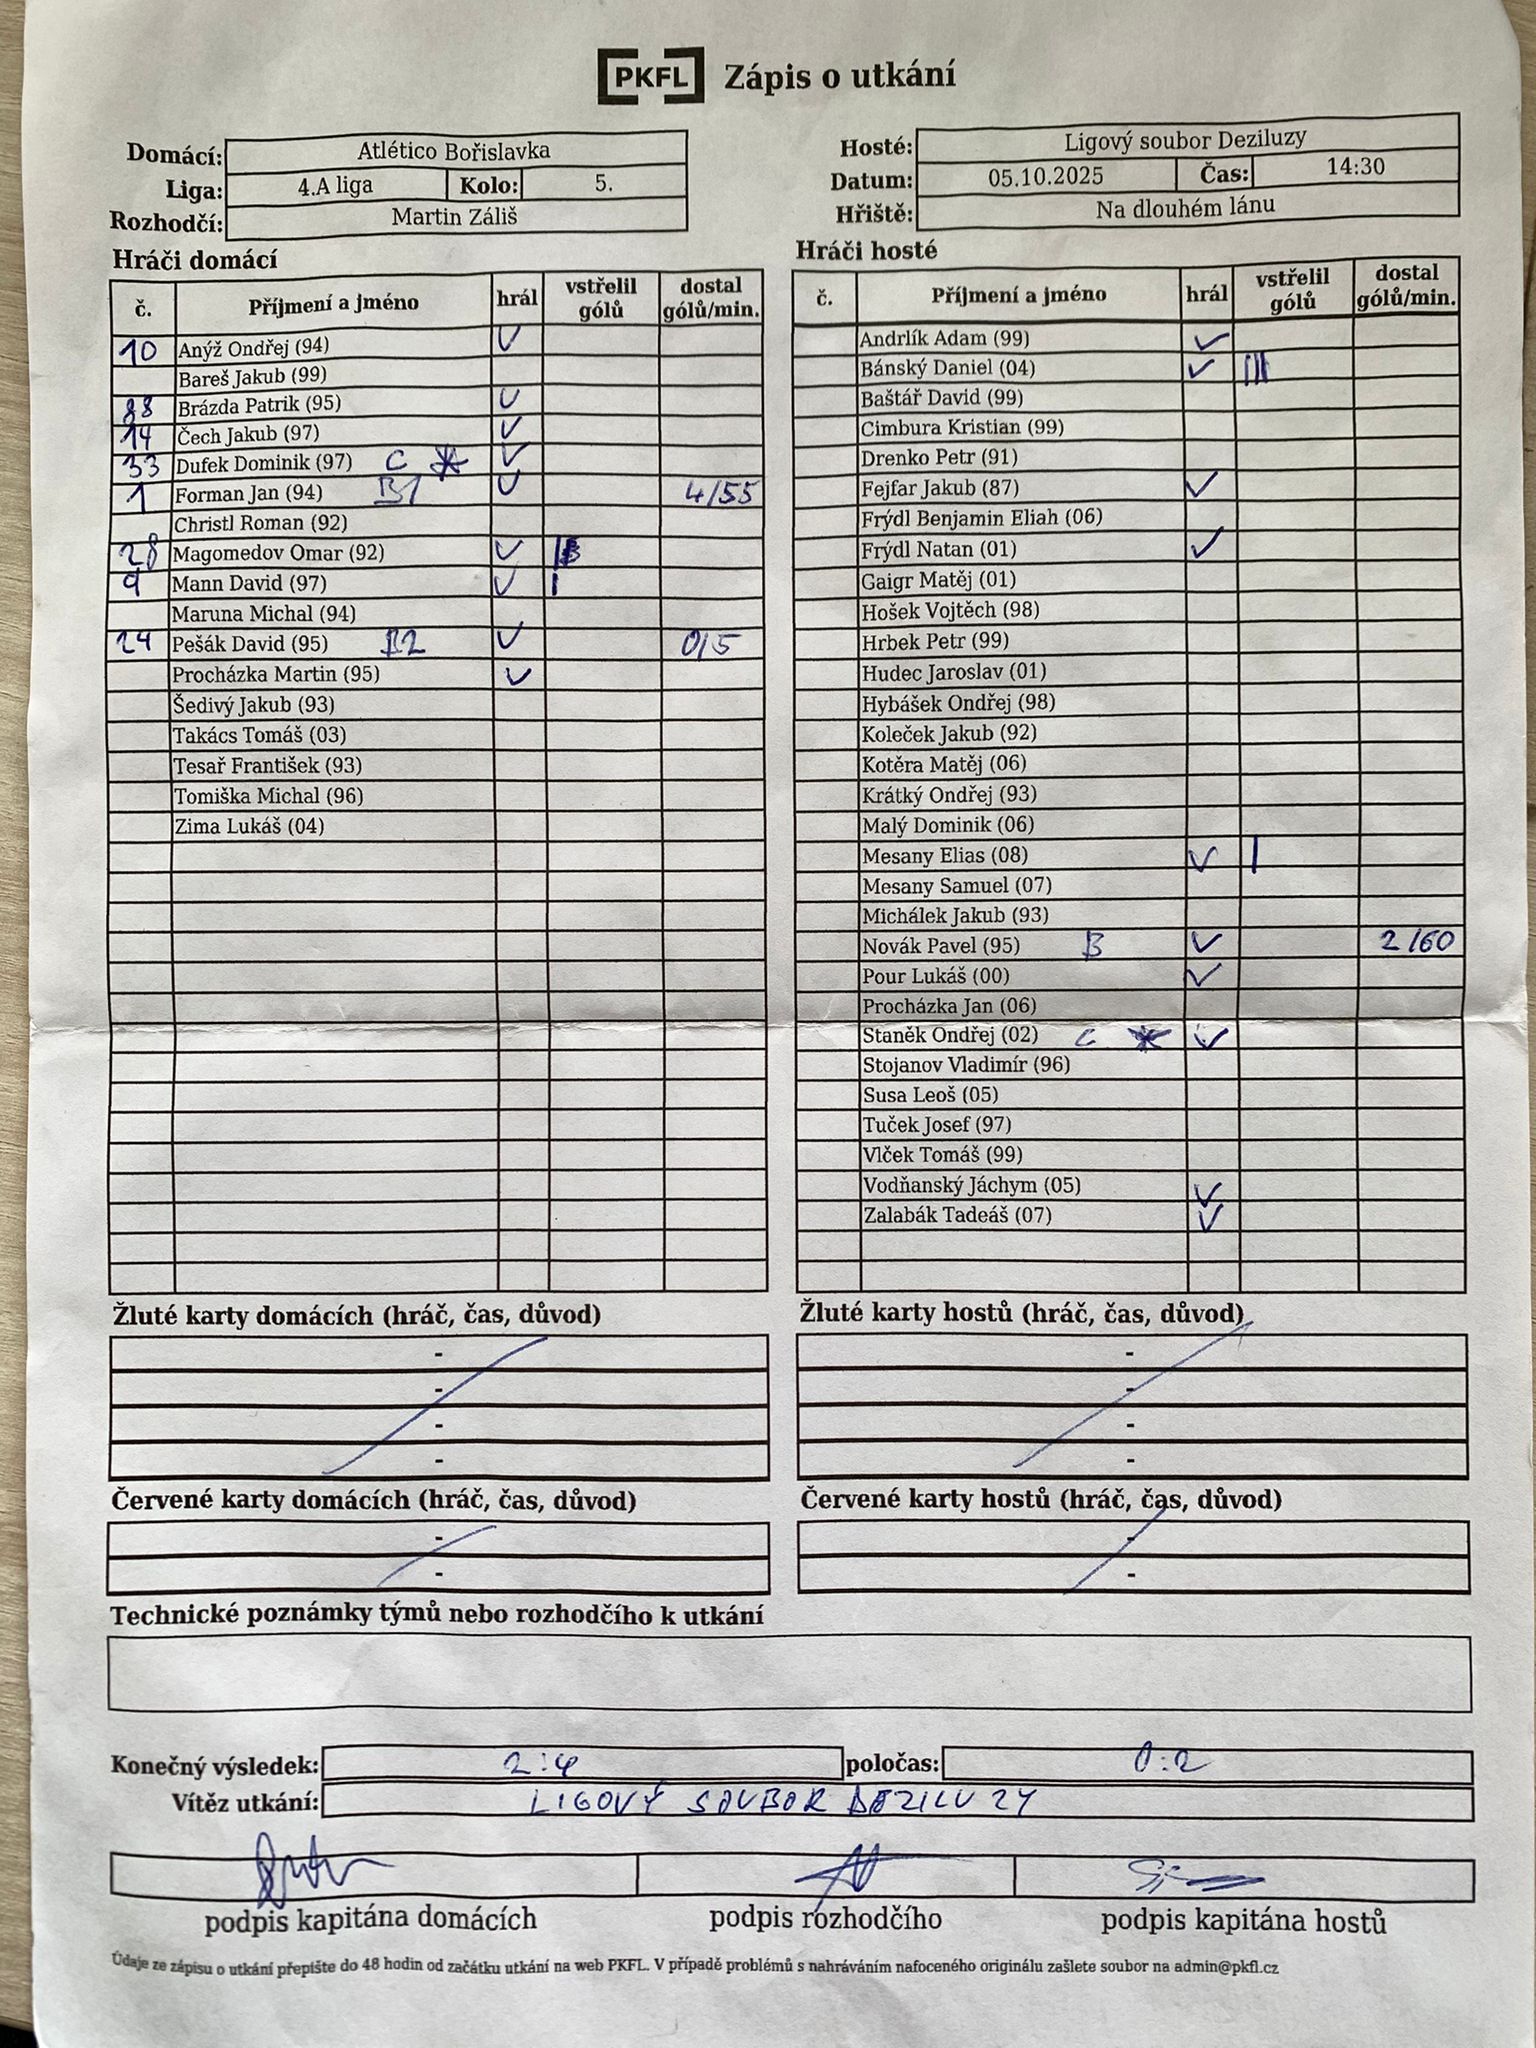 PKFL Zápis o utkání
Domácí: Atlético Bořislavka
Liga: 4.A liga Kolo: 5.
Rozhodčí: Martin Záliš
Hosté: Ligový soubor Deziluzy
Datum: 05.10.2025 Čas: 14:30
Hřiště: Na dlouhém lánu
Hráči domácí
č. Příjmení a jméno hrál vstřelil gólů dostal gólů/min.
10 Anýž Ondřej (94)
Bareš Jakub (99)
88 Brázda Patrik (95)
14 Čech Jakub (97)
33 Dufek Dominik (97) C
1 Forman Jan (94) B1 4/55
Christl Roman (92)
28 Magomedov Omar (92)
9 Mann David (97) I
Maruna Michal (94)
24 Pešák David (95) B2 0/5
Procházka Martin (95)
Šedivý Jakub (93)
Takács Tomáš (03)
Tesař František (93)
Tomiška Michal (96)
Zima Lukáš (04)
Hráči hosté
č. Příjmení a jméno hrál vstřelil gólů dostal gólů/min.
Andrlík Adam (99)
Bánský Daniel (04) III
Baštář David (99)
Cimbura Kristian (99)
Drenko Petr (91)
Fejfar Jakub (87)
Frýdl Benjamin Eliah (06)
Frýdl Natan (01)
Gaigr Matěj (01)
Hošek Vojtěch (98)
Hrbek Petr (99)
Hudec Jaroslav (01)
Hybášek Ondřej (98)
Koleček Jakub (92)
Kotěra Matěj (06)
Krátký Ondřej (93)
Malý Dominik (06)
Mesany Elias (08) I
Mesany Samuel (07)
Michálek Jakub (93)
Novák Pavel (95) B 2/60
Pour Lukáš (00)
Procházka Jan (06)
Staněk Ondřej (02) C
Stojanov Vladimír (96)
Susa Leoš (05)
Tuček Josef (97)
Vlček Tomáš (99)
Vodňanský Jáchym (05)
Zalabák Tadeáš (07)
Žluté karty domácích (hráč, čas, důvod)
-
-
-
-
Žluté karty hostů (hráč, čas, důvod)
-
-
-
-
Červené karty domácích (hráč, čas, důvod)
-
-
Červené karty hostů (hráč, čas, důvod)
-
-
Technické poznámky týmů nebo rozhodčího k utkání
Konečný výsledek: 2:4 poločas: 0:2
Vítěz utkání: LIGOVÝ SOUBOR DEZILUZY
podpis kapitána domácích podpis rozhodčího podpis kapitána hostů
Údaje ze zápisu o utkání přepište do 48 hodin od začátku utkání na web PKFL. V případě problémů s nahráváním nafoceného originálu zašlete soubor na admin@pkfl.cz